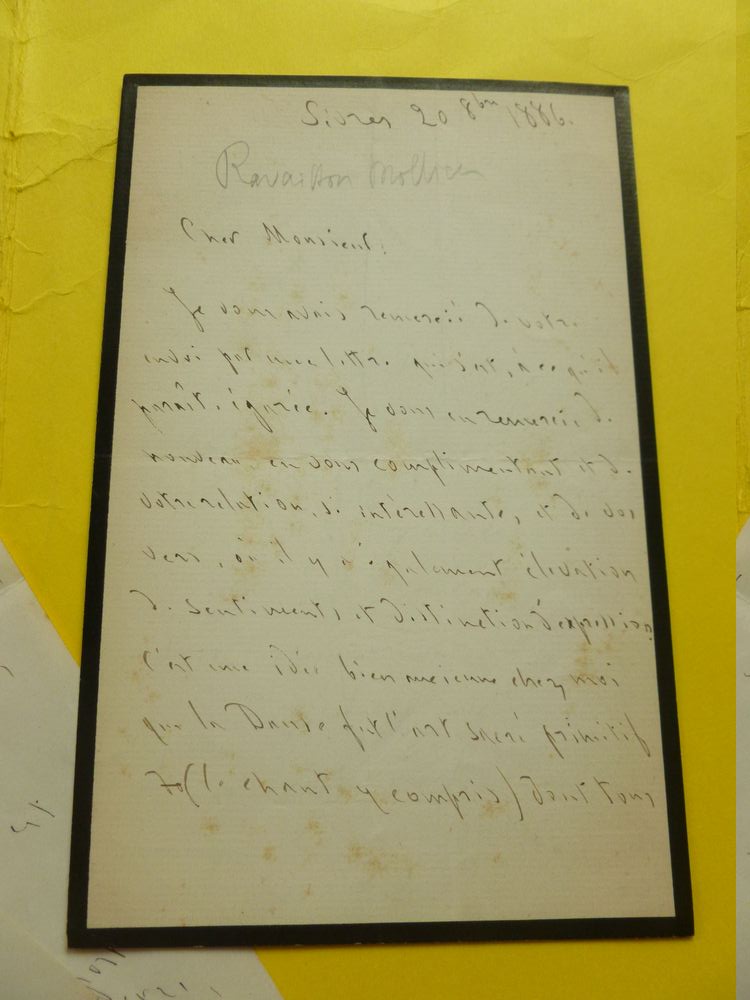 Sèvres 20 8bre 1886.
Ravaisson Mollien
Cher Monsieur,
Je vous avais remercié de votre
envoi par une lettre qui s'est, à ce qu'il
paraît, égarée. Je vous en remercie de
nouveau, en vous complimentant et de
votre relation, si intéressante, et de vos
vers, où il y a également élévation
de sentiments et distinction d'expression.
C'est une idée bien ancienne chez moi
que la Danse fut l'art sacré primitif
(le chant y compris) dont tous